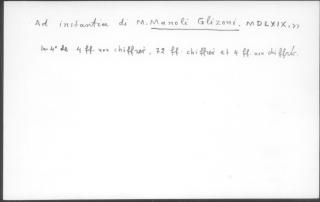 Ad instantia di M. Manoli Glizoni, MDLXIX, in
In 4° de 4 ff. non chiffrés, 72 ff. chiffrés et 4 ff. non chiffrés.